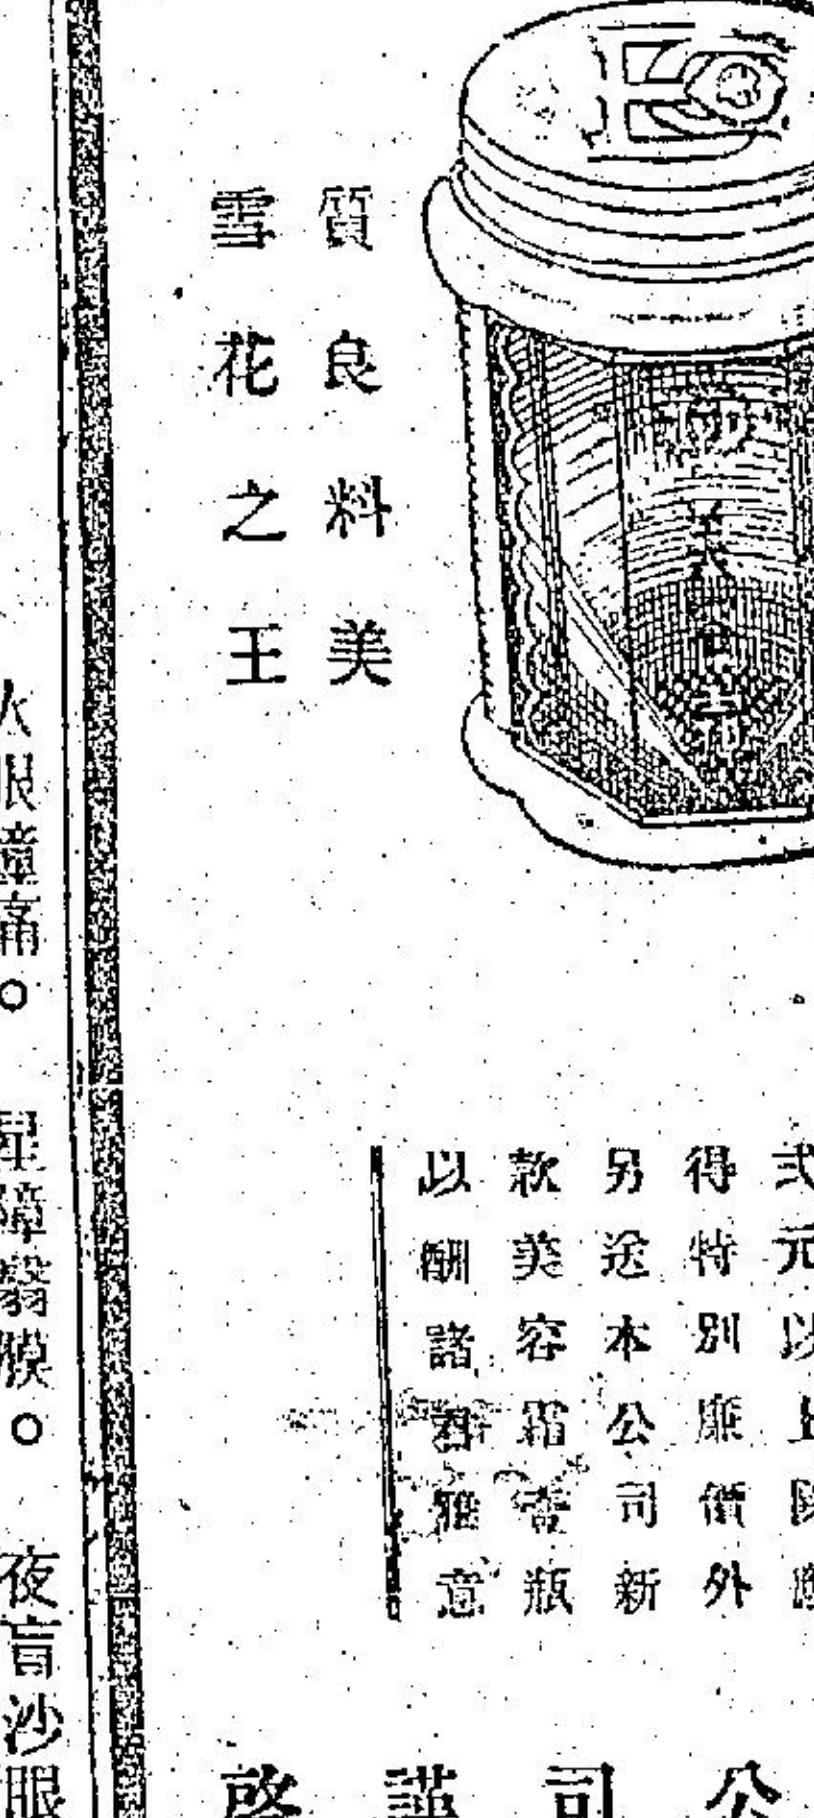 質良料美
雪花之王
弍元以上
得特別廉價外
另送本公司新
款美容霜壹瓶
以酬諸君雅意
公司謹啓
火眼瘴痛。 星障翳膜。 夜盲沙眼